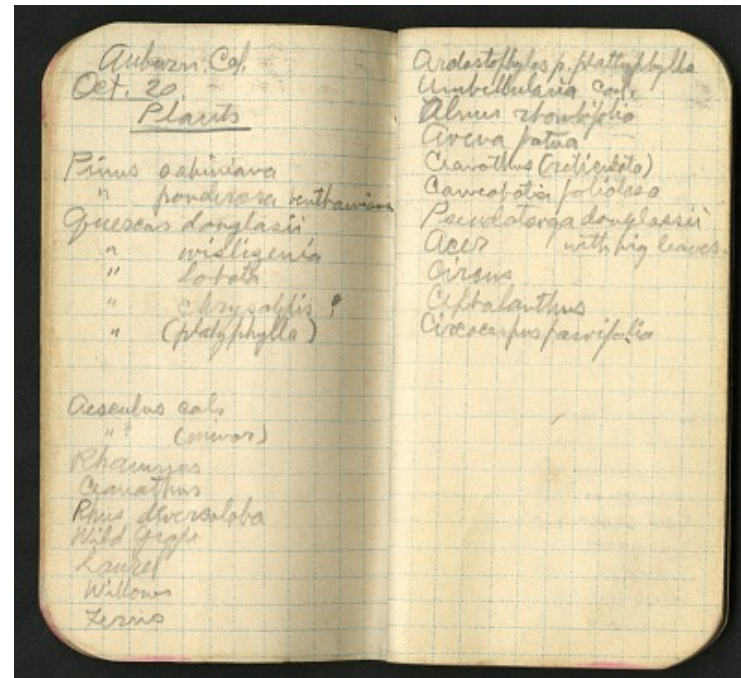 Auburn. Cal.
Oct. 20
Plants
Pinus sabiniana
" ponderosa benthamiana
Quercus douglasii
" wislizenia
" lobata
" chrysolepis ?
" (platyphylla)
Aesculus cal.
" ? (minor)
Rhamnus
Ceanothus
Rhus diversoloba
Wild Grape
Laurel
Willows
Ferns
Arctostophylos p. plattyphylla
Umbellularia cal.
Alnus rhombifolia
Avena fatua
Ceanothus (reticulata)
foliolosa
Pseudotsuga douglassii
Acer with big leaves.
Cephalanthus
Circocarpus parvifolia